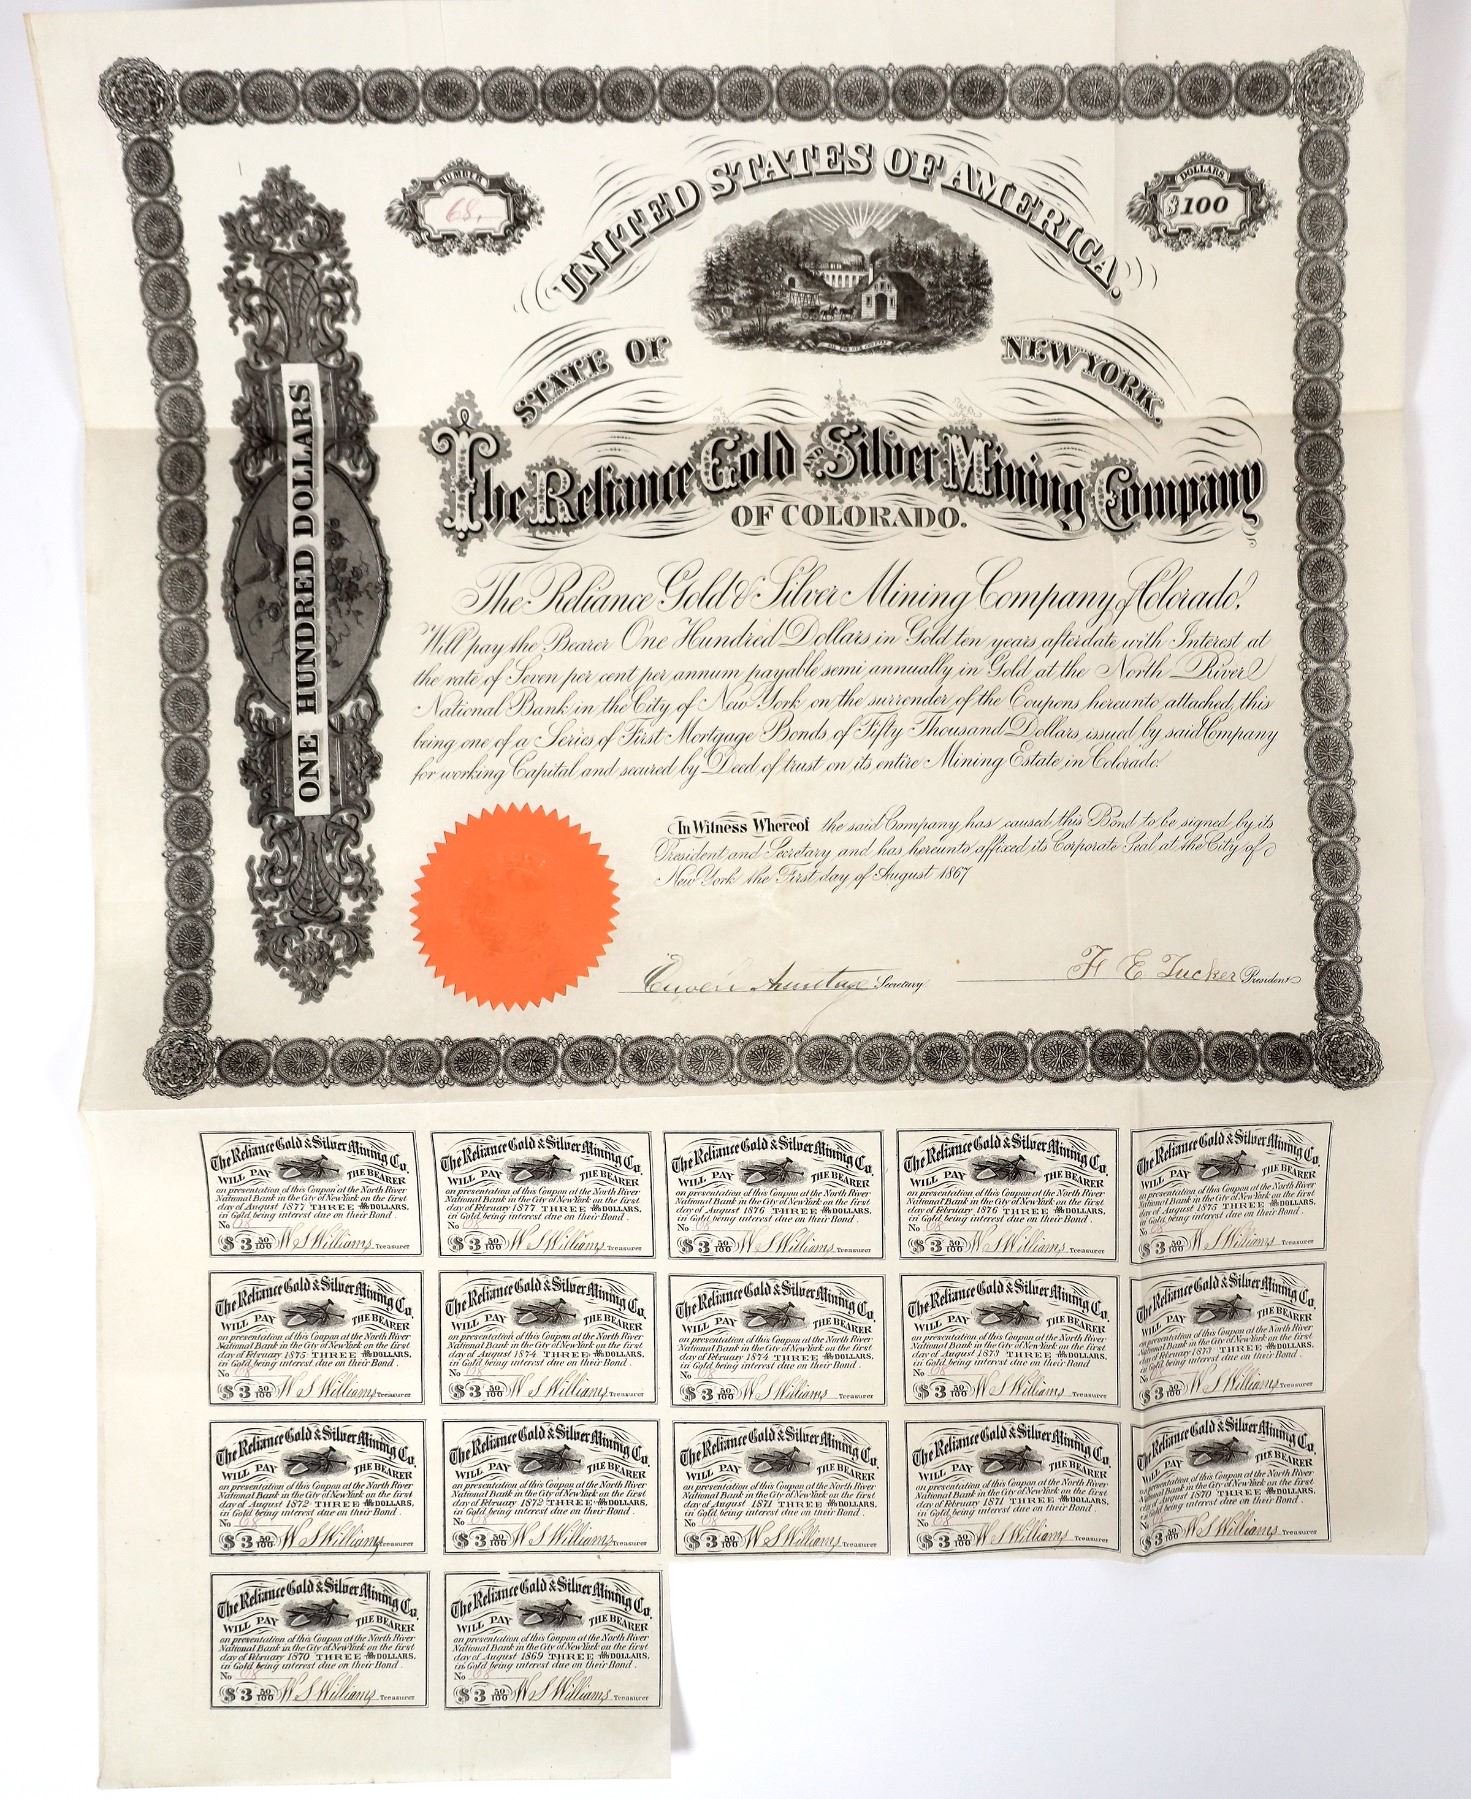 NUMBER
68.
DOLLARS
$100
UNITED STATES OF AMERICA.
STATE OF NEW YORK.
The Reliance Gold AND Silver Mining Company
OF COLORADO.
ONE HUNDRED DOLLARS
The Reliance Gold & Silver Mining Company of Colorado,
Will pay the Bearer One Hundred Dollars in Gold ten years after date with Interest at
the rate of Seven per cent per annum payable semi annually in Gold at the North River
National Bank in the City of New York on the surrender of the Coupons hereunto attached, this
being one of a Series of First Mortgage Bonds of Fifty Thousand Dollars, issued by said Company
for working Capital and secured by Deed of trust on its entire Mining Estate in Colorado.
In Witness Whereof the said Company has caused this Bond to be signed by its
President and Secretary and has hereunto affixed its Corporate Seal at the City of
New York the First day of August 1867
Secretary
F E Tucker President
The Reliance Gold & Silver Mining Co.
WILL PAY THE BEARER
on presentation of this Coupon at the North River
National Bank in the City of New York on the first
day of August 1877 THREE 50/100 DOLLARS,
in Gold being interest due on their Bond.
No 68
$3 50/100 W S Williams Treasurer
The Reliance Gold & Silver Mining Co.
WILL PAY THE BEARER
on presentation of this Coupon at the North River
National Bank in the City of New York on the first
day of February 1877 THREE 50/100 DOLLARS,
in Gold being interest due on their Bond.
No 68
$3 50/100 W S Williams Treasurer
The Reliance Gold & Silver Mining Co.
WILL PAY THE BEARER
on presentation of this Coupon at the North River
National Bank in the City of New York on the first
day of August 1876 THREE 50/100 DOLLARS,
in Gold being interest due on their Bond.
No 68
$3 50/100 W S Williams Treasurer
The Reliance Gold & Silver Mining Co.
WILL PAY THE BEARER
on presentation of this Coupon at the North River
National Bank in the City of New York on the first
day of February 1876 THREE 50/100 DOLLARS,
in Gold being interest due on their Bond.
No 68
$3 50/100 W S Williams Treasurer
The Reliance Gold & Silver Mining Co.
WILL PAY THE BEARER
on presentation of this Coupon at the North River
National Bank in the City of New York on the first
day of August 1875 THREE 50/100 DOLLARS,
in Gold being interest due on their Bond.
No 68
$3 50/100 W S Williams Treasurer
The Reliance Gold & Silver Mining Co.
WILL PAY THE BEARER
on presentation of this Coupon at the North River
National Bank in the City of New York on the first
day of February 1875 THREE 50/100 DOLLARS,
in Gold being interest due on their Bond.
No 68
$3 50/100 W S Williams Treasurer
The Reliance Gold & Silver Mining Co.
WILL PAY THE BEARER
on presentation of this Coupon at the North River
National Bank in the City of New York on the first
day of August 1874 THREE 50/100 DOLLARS,
in Gold being interest due on their Bond.
No 68
$3 50/100 W S Williams Treasurer
The Reliance Gold & Silver Mining Co.
WILL PAY THE BEARER
on presentation of this Coupon at the North River
National Bank in the City of New York on the first
day of February 1874 THREE 50/100 DOLLARS,
in Gold being interest due on their Bond.
No 68
$3 50/100 W S Williams Treasurer
The Reliance Gold & Silver Mining Co.
WILL PAY THE BEARER
on presentation of this Coupon at the North River
National Bank in the City of New York on the first
day of August 1873 THREE 50/100 DOLLARS,
in Gold being interest due on their Bond.
No 68
$3 50/100 W S Williams Treasurer
The Reliance Gold & Silver Mining Co.
WILL PAY THE BEARER
on presentation of this Coupon at the North River
National Bank in the City of New York on the first
day of February 1873 THREE 50/100 DOLLARS,
in Gold being interest due on their Bond.
No 68
$3 50/100 W S Williams Treasurer
The Reliance Gold & Silver Mining Co.
WILL PAY THE BEARER
on presentation of this Coupon at the North River
National Bank in the City of New York on the first
day of August 1872 THREE 50/100 DOLLARS,
in Gold being interest due on their Bond.
No 68
$3 50/100 W S Williams Treasurer
The Reliance Gold & Silver Mining Co.
WILL PAY THE BEARER
on presentation of this Coupon at the North River
National Bank in the City of New York on the first
day of February 1872 THREE 50/100 DOLLARS,
in Gold being interest due on their Bond.
No 68
$3 50/100 W S Williams Treasurer
The Reliance Gold & Silver Mining Co.
WILL PAY THE BEARER
on presentation of this Coupon at the North River
National Bank in the City of New York on the first
day of August 1871 THREE 50/100 DOLLARS,
in Gold being interest due on their Bond.
No 68
$3 50/100 W S Williams Treasurer
The Reliance Gold & Silver Mining Co.
WILL PAY THE BEARER
on presentation of this Coupon at the North River
National Bank in the City of New York on the first
day of February 1871 THREE 50/100 DOLLARS,
in Gold being interest due on their Bond.
No 68
$3 50/100 W S Williams Treasurer
The Reliance Gold & Silver Mining Co.
WILL PAY THE BEARER
on presentation of this Coupon at the North River
National Bank in the City of New York on the first
day of August 1870 THREE 50/100 DOLLARS,
in Gold being interest due on their Bond.
No 68
$3 50/100 W S Williams Treasurer
The Reliance Gold & Silver Mining Co.
WILL PAY THE BEARER
on presentation of this Coupon at the North River
National Bank in the City of New York on the first
day of February 1870 THREE 50/100 DOLLARS,
in Gold being interest due on their Bond.
No 68
$3 50/100 W S Williams Treasurer
The Reliance Gold & Silver Mining Co.
WILL PAY THE BEARER
on presentation of this Coupon at the North River
National Bank in the City of New York on the first
day of August 1869 THREE 50/100 DOLLARS,
in Gold being interest due on their Bond.
No 68
$3 50/100 W S Williams Treasurer